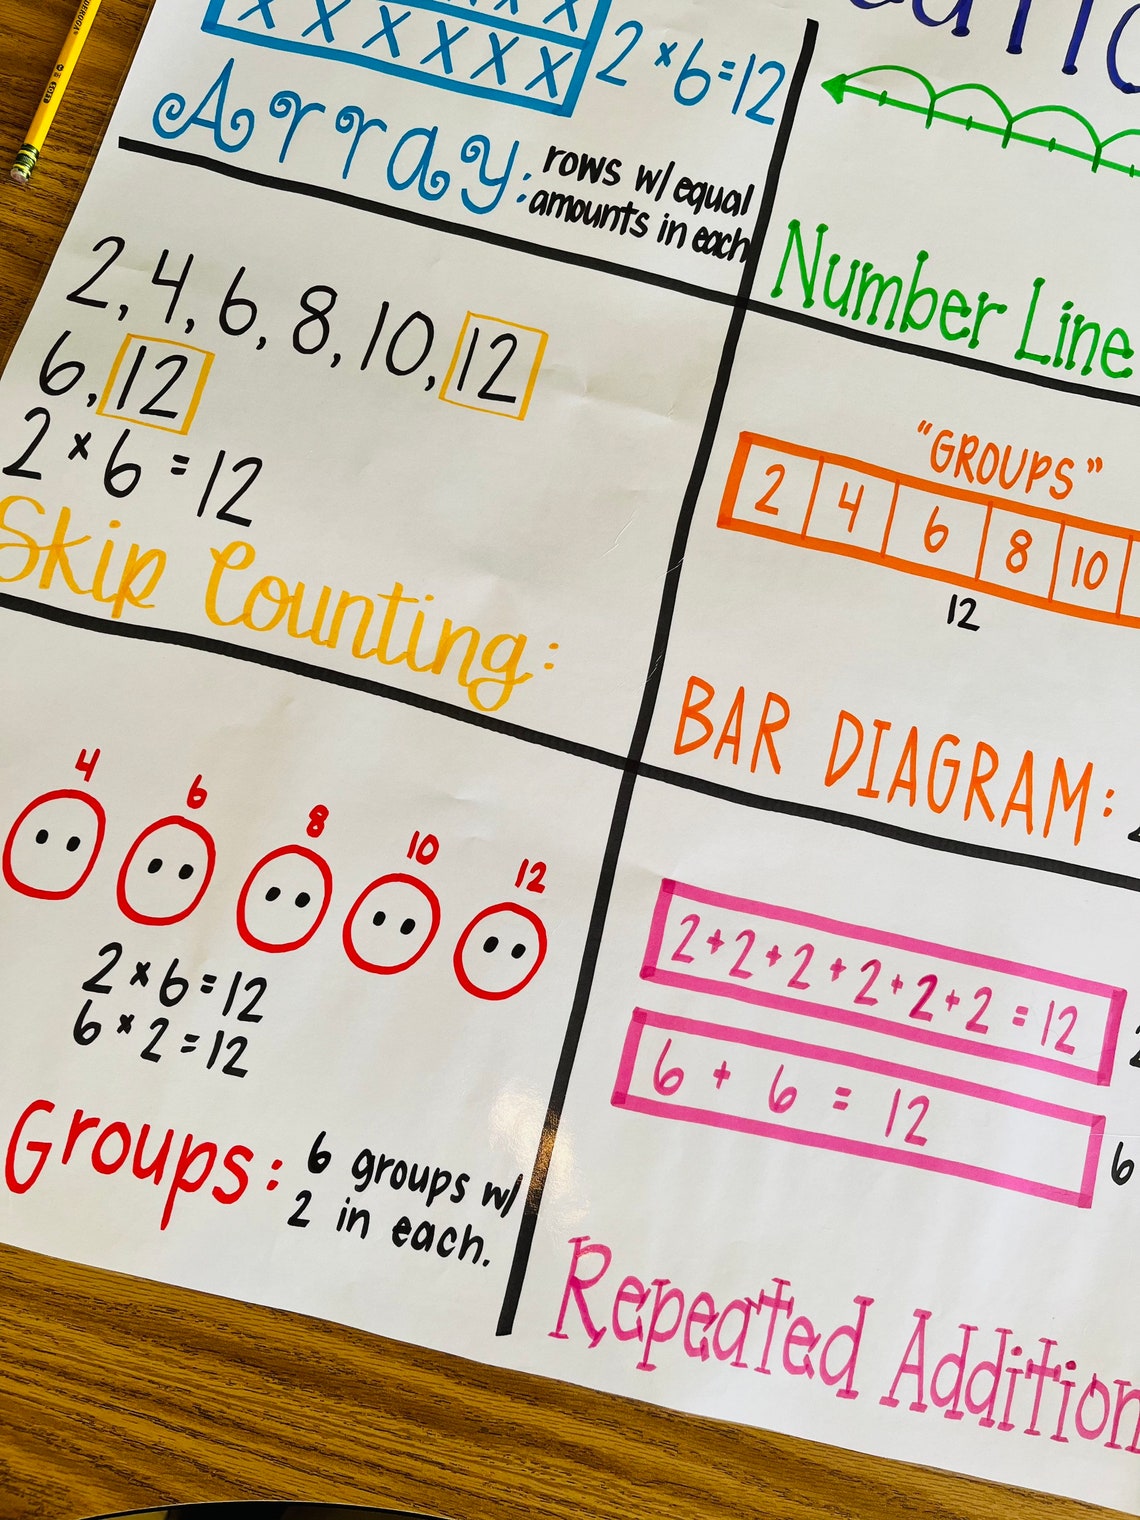 X X X X X X
2 × 6 = 12
Array:
rows w/ equal
amounts in each
Number Line
2, 4, 6, 8, 10, 12
6, 12
2 × 6 = 12
Skip Counting:
"GROUPS"
2 4 6 8 10
12
BAR DIAGRAM:
4 6 8 10 12
2 × 6 = 12
6 × 2 = 12
Groups: 6 groups w/
2 in each.
2 + 2 + 2 + 2 + 2 + 2 = 12
6 + 6 = 12
6
Repeated Addition